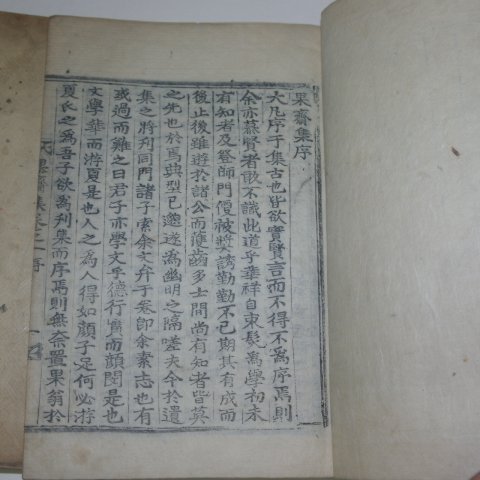 果齋集序
大凡序于集古也皆欲實賢言而不得不爲序焉則
余亦慕賢者敢不識此道乎華祥自束髮爲學初未
有知者及登師門優被奬誘勤勤不已期其有成而
後止後雖遊於諸公而薩齒多士間尚有知者皆莫
之先也於焉典型已邈遂爲幽明之隔嗟夫今於遺
集之將刋同門諸子索余文弁于卷卽余素志也有
或過而難之曰君子亦學文乎德行實而顔閔是也
文學華而游夏是也人之爲人得如顔子足何必游
夏氏之爲吾子欲爲刋集而序焉則無奈置果翁於
果齋集卷之一 序 一